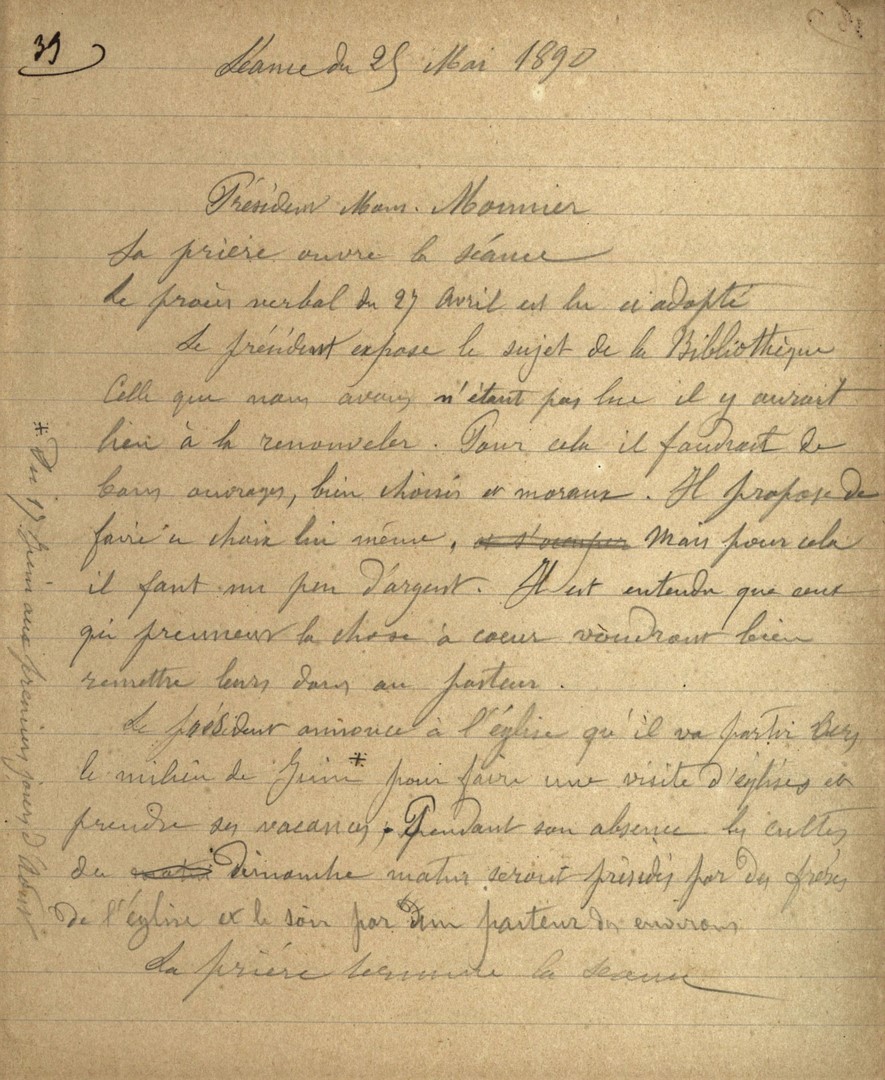 39
Séance du 25 Mai 1890
Président Mons. Monnier
La prière ouvre la séance
Le procès verbal du 27 Avril est lu et adopté
Le président expose le sujet de la Bibliothèque
Celle que nous avons n'étant pas lue il y aurait
lieu à la renouveler. Pour cela il faudrait de
bons ouvrages, bien choisis et moraux. Il propose de
faire ce choix lui même, et s'occuper Mais pour cela
il faut un peu d'argent. Il est entendu que ceux
qui prennent la chose à coeur voudront bien
remettre leurs dons au pasteur.
Le président annonce à l'église qu'il va partir vers
le milieu de Juin* pour faire une visite d'églises et
prendre ses vacances. Pendant son absence les cultes
du matin Dimanche matin seront présidés par des frères
de l'église et le soir par un pasteur des environs
La prière termine la séance
* Du 17 Juin aux premiers jours d'Août